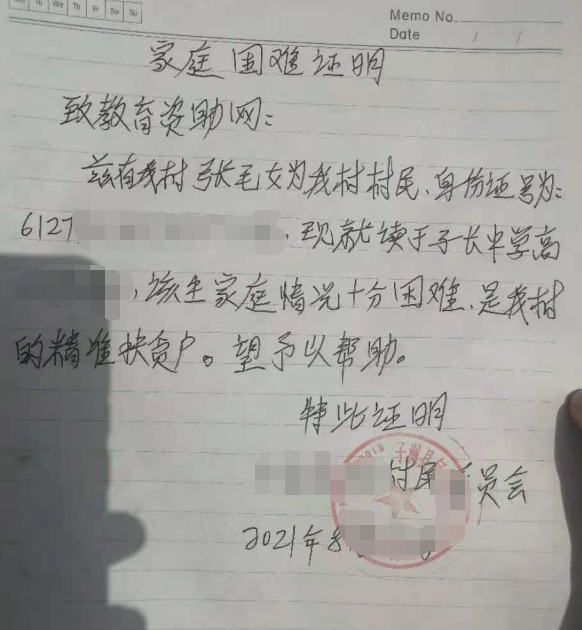 Tu We Th Fr Sa Su
Memo No.
Date / /
家庭困难证明
致教育资助网：
兹有我村张毛女为我村村民、身份证号为：
6127 ，现就读于子长中学高
，该生家庭情况十分困难、是我村
的精准扶贫户。望予以帮助。
特此证明
村民 员会
2021年8